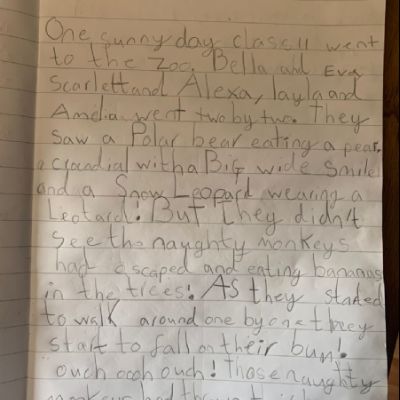 One sunny day class 11 went
to the Zoo. Bella and Eva
Scarlett and Alexa, layla and
Amelia went two by two. They
Saw a Polar bear eating a pear,
a crocadial with a Big wide Smile
and a Snow Leopard wearing a
Leotard! But they didn't
See the naughty monkeys
had escaped and eating bananas
in the trees! As they started
to walk around one by one they
start to fall on their bum!
ouch oooh ouch! Those naughty